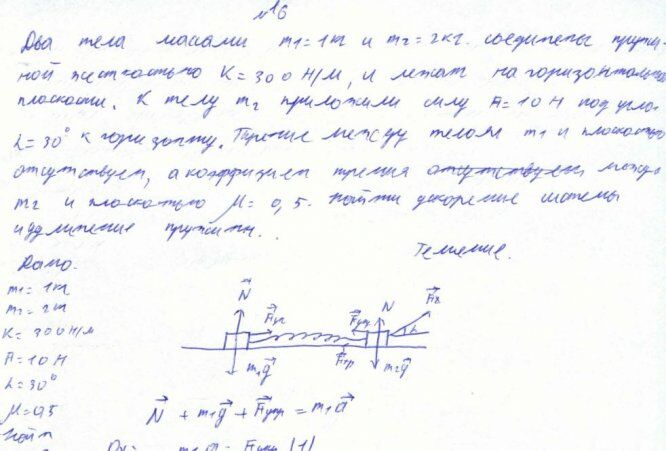 №6
Два тела масами m1=1кг и m2=2кг. соединены пружи-
ной жесткостью K=300 Н/м, и лежат на горизонтальной
плоскости. К телу m2 приложили силу F=10Н под угло.
L=30° к горизонту. Трение между телом m1 и плоскостью
отсутствует, а коэффициент трения отсутствует между
m2 и плоскостью M=0,5. Найти ускорение системы
и удлинение пружины.
Решение.
Дано.
m1=1кг
m2=2кг
K=300Н/м
F=10Н
L=30°
M=0,5
Найти
N Fупр Fупр N F L
m1g Fтр m2g
N + m1g + Fупр = m1a
m1a = Fупр (1)